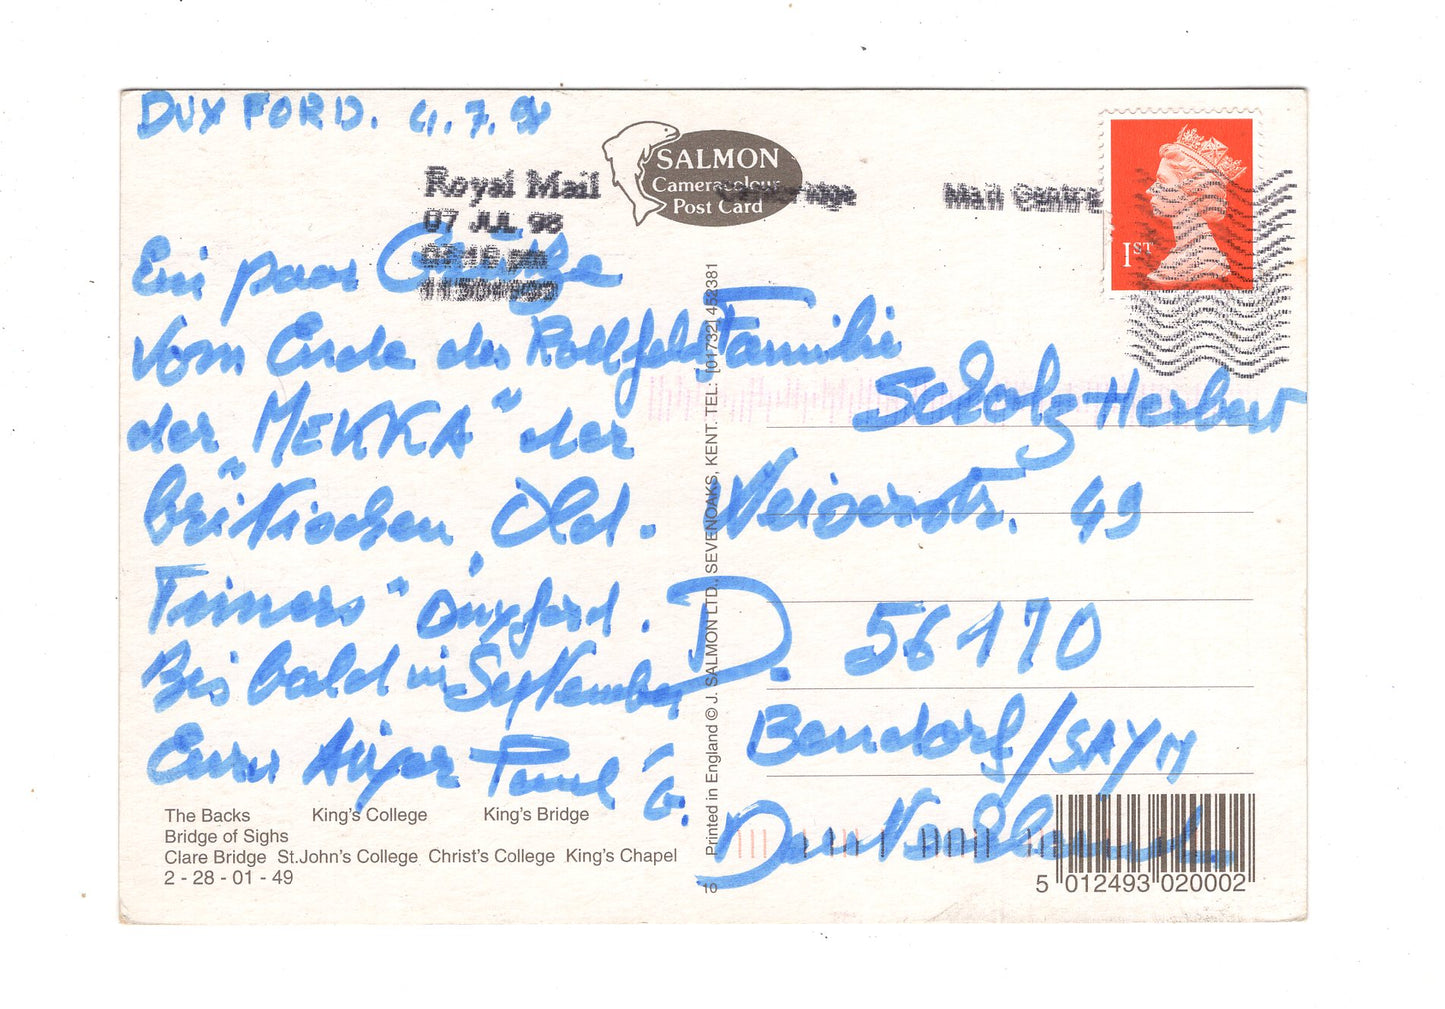 DUXFORD. 4.7.98
SALMON
Cameracolour
Post Card
Royal Mail
07 JUL 98
Mail Centre
1ST
Ein paar Grüße
vom Ende des Rollfeld
der "MEKKA" der
britischen "Old.
Timers" Duxford.
Bis bald im September
Euer Paul G.
Familie
Scholz Herbert
49
D. 56170
Bendorf/SAYN
Deutschland.
Printed in England © J. SALMON LTD., SEVENOAKS, KENT. TEL: [01732] 452381
The Backs King's College King's Bridge
Bridge of Sighs
Clare Bridge St.John's College Christ's College King's Chapel
2 - 28 - 01 - 49
10
5 012493 020002